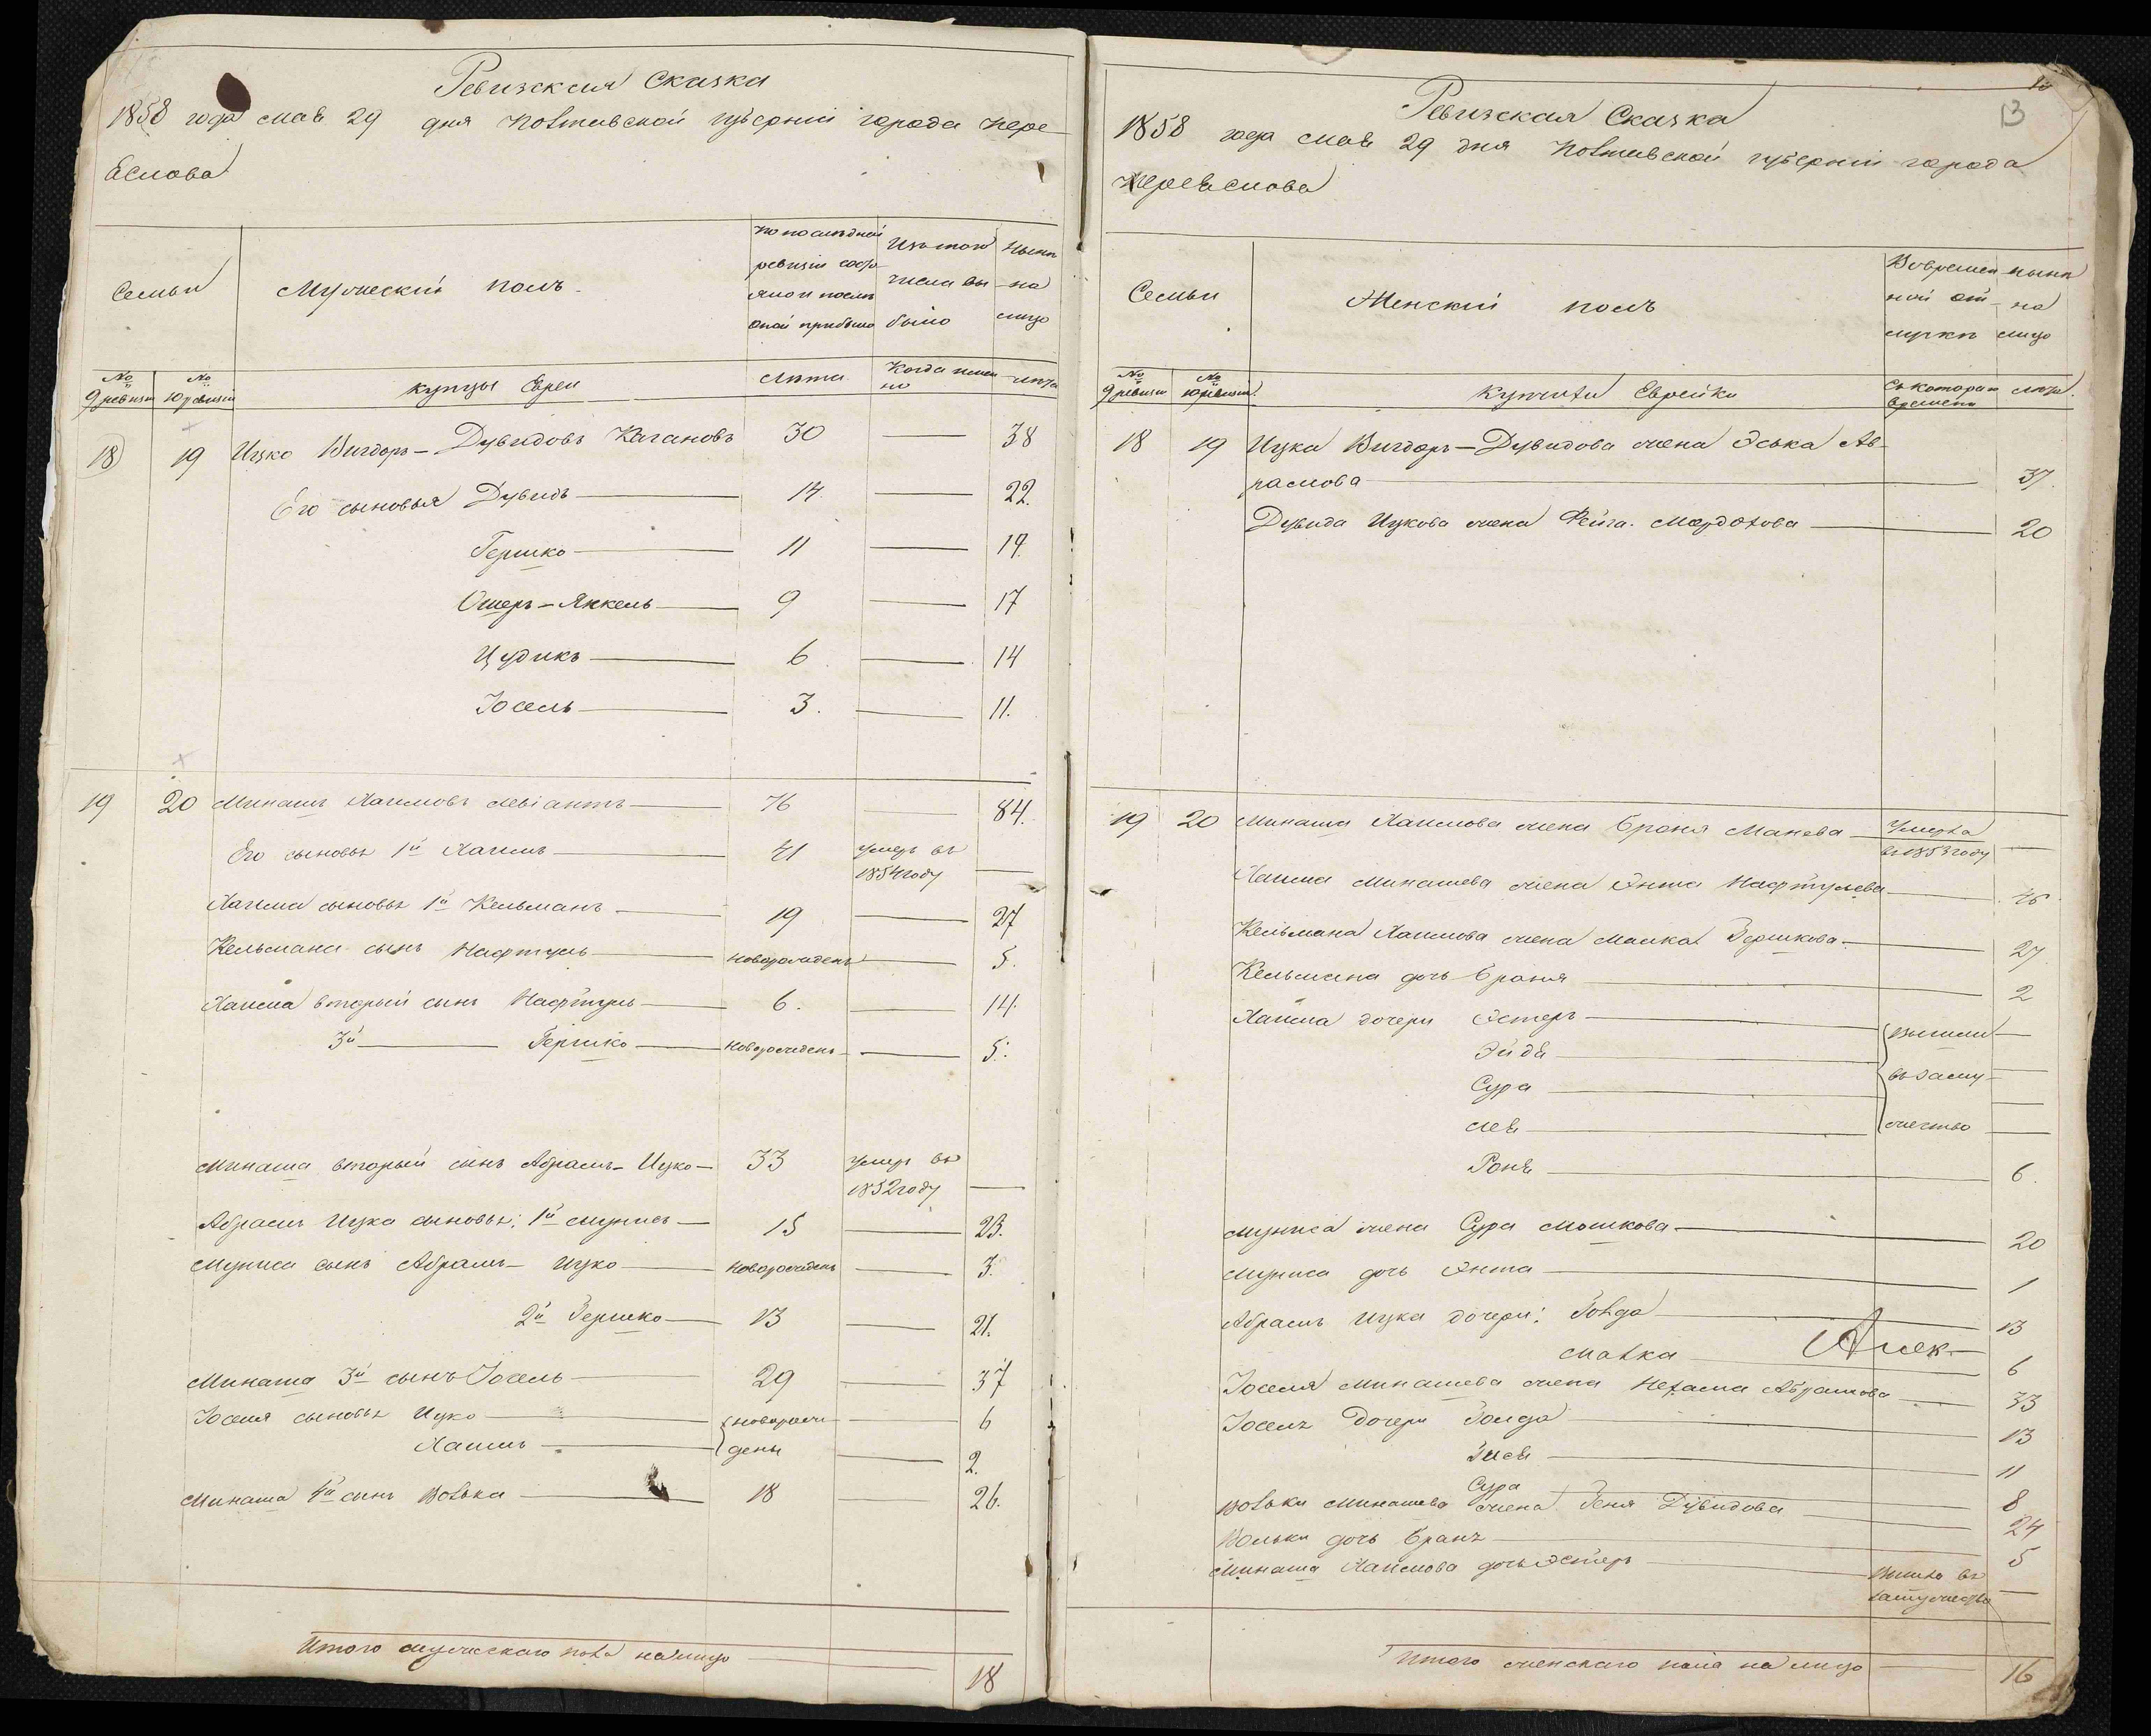 Ревизская Сказка
1858 года мая 29 дня Полтавской губерніи города Пере-
яслова
Семьи
Мужескій полъ.
По последней
ревизіи состо-
яло и после
оной прибыло
Изъ того
числа вы-
было
Ныне
на
лицо
№ 9 ревизіи
№ 10 ревизіи
купцы Евреи
Лета
Когда именно
лета
18 19 Ицко Вигдоръ-Дувидовъ Кагановъ 30 38
Его сыновья Дувидъ 14 22.
Гершко 11 19.
Ошеръ-Янкель 9 17
Цудикъ 6. 14
Іосель 3. 11.
19 20 Минашъ Хаимовъ Левіантъ 76 84.
Его сыновья 1й Хаимъ 41 умеръ въ
1854 году
Хаима сыновья 1й Кельманъ 19 27
Кельмана сынъ Нафтуль новорожденъ 5.
Хаима вторый сынъ Нафтуль 6. 14.
3й Гершко новорожденъ 5.
Минаша вторый сынъ Абрамъ-Ицко 33 умеръ въ
1852 году
Абрамъ Ицка сыновья: 1й Мунисъ 15 23.
Муниса сынъ Абрамъ-Ицко новорожденъ 3.
2й Гершко 13 21.
Минаша 3й сынъ Іосель 29 37
Іоселя сыновья Ицко новорож- 6
Хаимъ дены 2.
Минаша 4й сынъ Волька 18 26.
Итого мужескаго пола на лицо 18
13
Ревизская Сказка
1858 года мая 29 дня Полтавской губерніи города
Переяслова
Семьи
Женскій полъ
Во времен-
ной от-
лучке
ныне
на
лицо
№ 9 ревизіи
№ 10 ревизіи.
Купчихи Еврейки
Съ котораго
времени
лета.
18 19 Ицка Вигдоръ-Дувидова жена Эська Аб-
рамова 37.
Дувида Ицкова жена Фейга Мордохова 20
19 20 Минаша Хаимова жена Броня Манева Умерла
въ 1853 году
Хаима Минашева жена Энта Нафтулева 46
Кельмана Хаимова жена Малка Гершкова 27
Кельмана дочь Броня 2
Хаима дочери Эстеръ вышли
Эйдя
Сура въ заму-
Лея жество
Роня 6.
Муниса жена Сура Мошкова 20
Муниса дочь Энта 1
Абрамъ Ицка дочери: Голда 13
Малка 6
Алек-
Іоселя Минашева жена Нехама Абрамова 33
Іоселя дочери Голда 13
Зися 11
Сура 8
Вольки Минашева жена Геня Дувидова 24
Вольки дочь Браня 5
Минаша Хаимова дочь Эстеръ Вышла въ
замужество
Итого женскаго пола на лицо 16